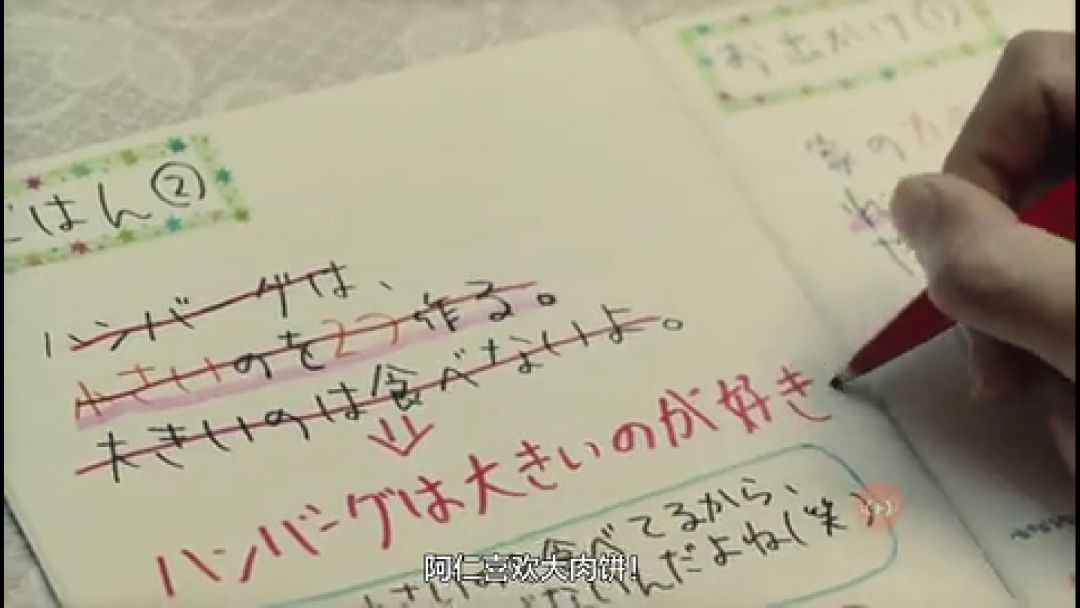 ごはん②
ハンバーグは、
小さいのを2つ作る。
大きいのは食べないよ。
ハンバーグは大きいのが好き
食べてるから、
んだよね(笑)
おでかけ①
家の
阿仁喜欢大肉饼!